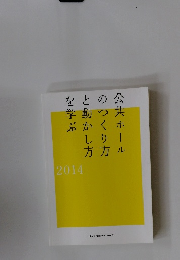 公共ホール
のつくり方
と動かし方
を学ぶ
2014